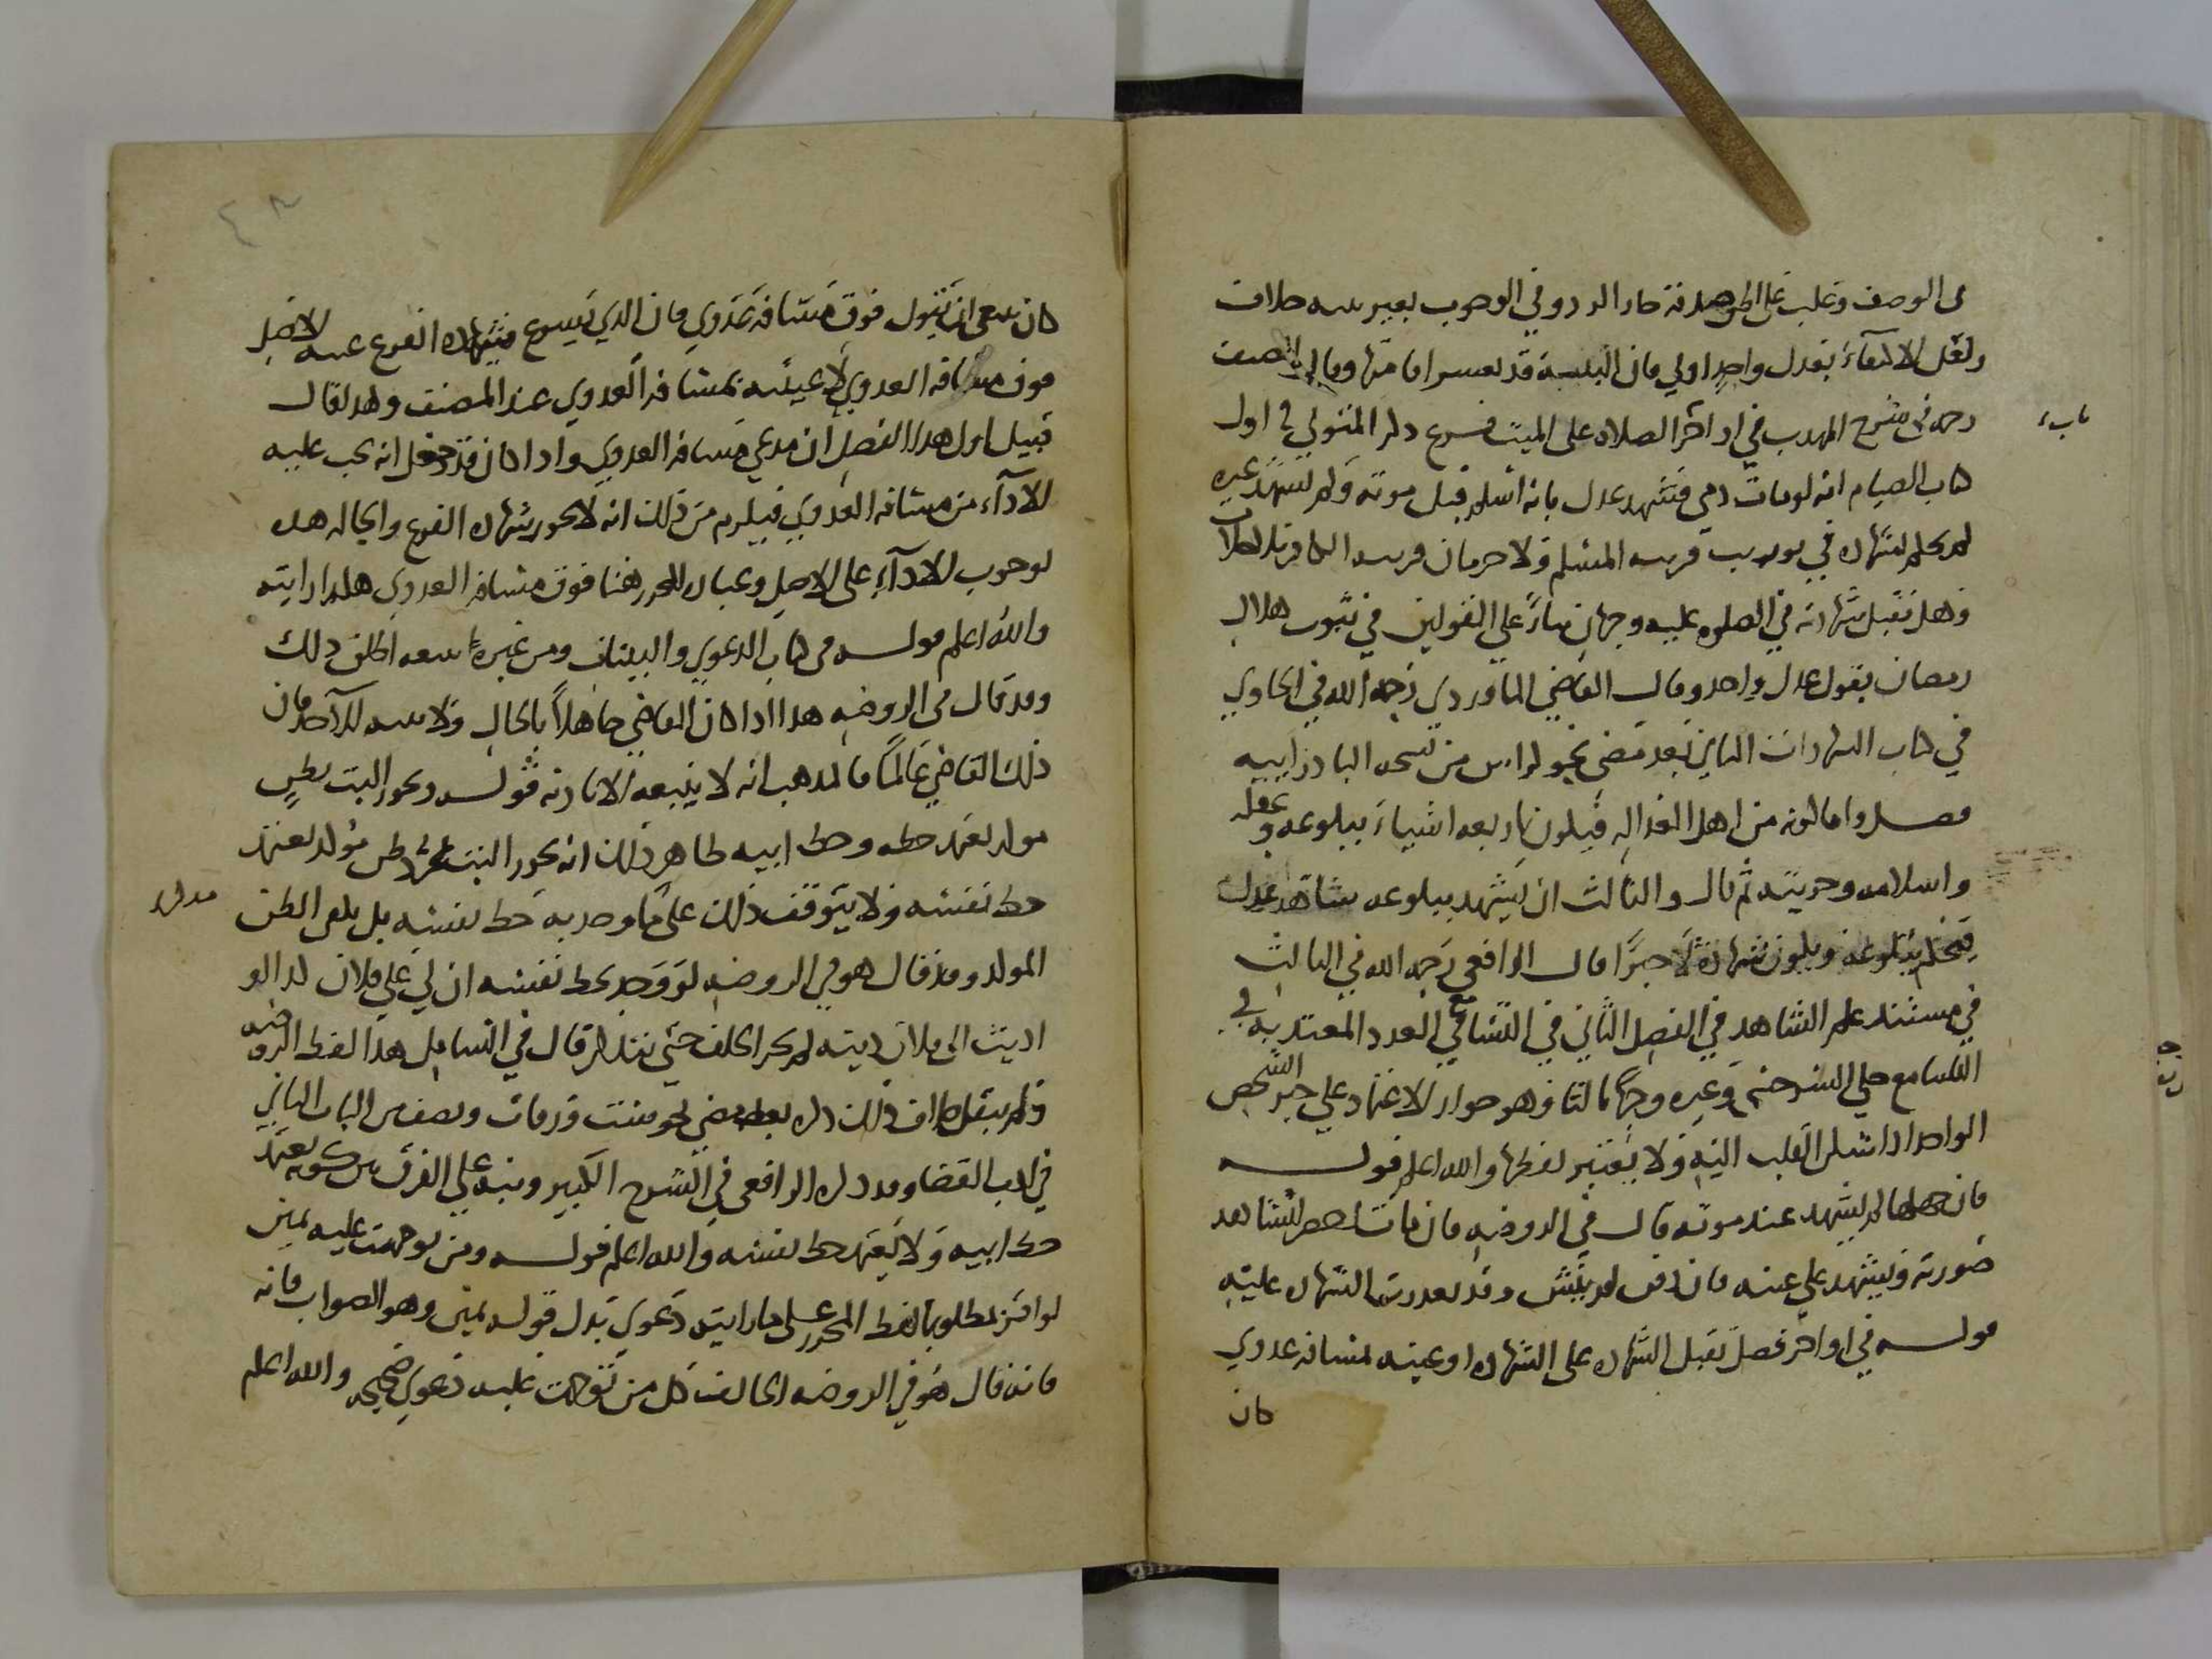 في الوصف وغلب على الظن صدقه جاز الرد وفي الوجوب بغير بينه خلاف
ولعل الاكتفاء بعدل واحد اولي فان البينة قد تعسر اقامتها وقال المصنف
رحمه في شرح المهذب في اواخر الصلاه على الميت فرع ذكر المتولي في اول
كتاب الصيام انه لو مات ذمي فشهد عدل بانه اسلم قبل موته ولم يشهد غيره
لم يحكم بشهادته في توريث قريبه المسلم ولا حرمان قريبه الكافر بلا خلاف
وهل تقبل شهادته في الصلوه عليه وجهان بناءً على القولين في ثبوت هلال
رمضان بقول عدل واحد وقال القاضي الماوردي رحمه الله في الحاوي
في كتاب الشهادات الثاني بعد مضي نحو كراس من نسخه البادرائيه
فصل واما كونه من اهل العداله فيكون باربعه اشياء ببلوغه وعقله
واسلامه وحريته ثم قال والثالث ان يشهد ببلوغه شاهد عدل
فيحكم ببلوغه ويكون شهادة لا خبرا قال الرافعي رحمه الله في الثالث
في مستند علم الشاهد في الفصل الثاني في التسامع العدد المعتد به في
التسامع حكي السرخسي وغيره وجها ثالثا وهو جواز الاعتماد على خبر الشخص
الواحد اذا سكن القلب اليه ولا يعتبر لفظها والله اعلم قوله
فان جهلها لم يشهد عند موته قال في الروضه فان مات احضر ليشاهد
صورته ويشهد على عينه فان دفن لم ينبش وقد تعذرت الشهاده عليه
قوله في اواخر فصل تقبل الشهاده على الشهاده او غيبه لمسافه عدوي
كان
كان ينبغي ان يقول فوق مسافه عدوي فان الذي يسوغ شهاده الفرع غيبه الاصل
فوق مسافه العدوي لا غيبته بمسافه العدوي عند المصنف وقد قال
قبيل اول هذا الفصل ان مدعي مسافه العدوي واذا كان قد جعل انه يجب عليه
الاداء من مسافه العدوي فيلزم من ذلك انه لا يجوز شهاده الفرع والحاله هذه
لوجوب الاداء على الاصل وعباره المحرر هنا فوق مسافه العدوي هكذا رايته
والله اعلم قوله في كتاب الدعوي والبينات ومن غيره اطلق ذلك
وقد قال في الروضه هذا اذا كان القاضي جاهلاً بالحال ولا بينه للاخر فان
ذلك القاضي عالماً فالمذهب انه لا ينفعه الا باذنه قوله ويجوز البت بظن
موكد يعتمد خطه وخط ابيه ظاهر ذلك انه يجوز البت بمجرد ظن موكد يعتمد
خط نفسه ولا يتوقف ذلك على ما وجد به خط نفسه بل يلغى الظن
الموكد وقد قال هو في الروضه لو وجد بخط نفسه ان لي على فلان كذا او
اديت الى فلان دينه لم يجز الحلف حتى يتذكر قال في الشامل هذا لفظ الروضه
ولم ينقل خلاف ذلك ذكره بعد مضي نحو ست ورقات ونصف من الباب الثاني
في ادب القضا وقد ذكره الرافعي في الشرح الكبير ونبه على الفرق من كونه يعتمد
خط ابيه ولا يعتمد خط نفسه والله اعلم قوله ومن توجهت عليه يمين
لو اقر بمطلوبها لفظ المحرر على ما رايت دعوي بدل قوله يمين وهو الصواب فانه
فانه قال هو في الروضه الحالف كل من توجهت عليه دعوي صحيحه والله اعلم